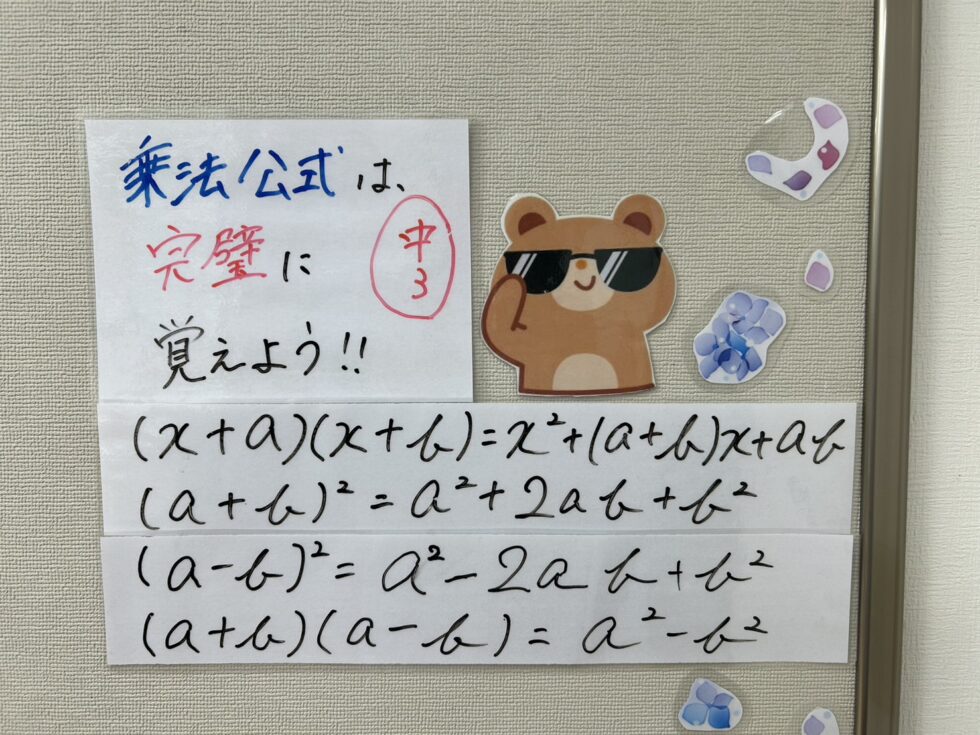 乗法公式は、
完璧に
中
3
覚えよう!!
(x+a)(x+b)=x²+(a+b)x+ab
(a+b)²=a²+2ab+b²
(a-b)²=a²-2ab+b²
(a+b)(a-b)=a²-b²